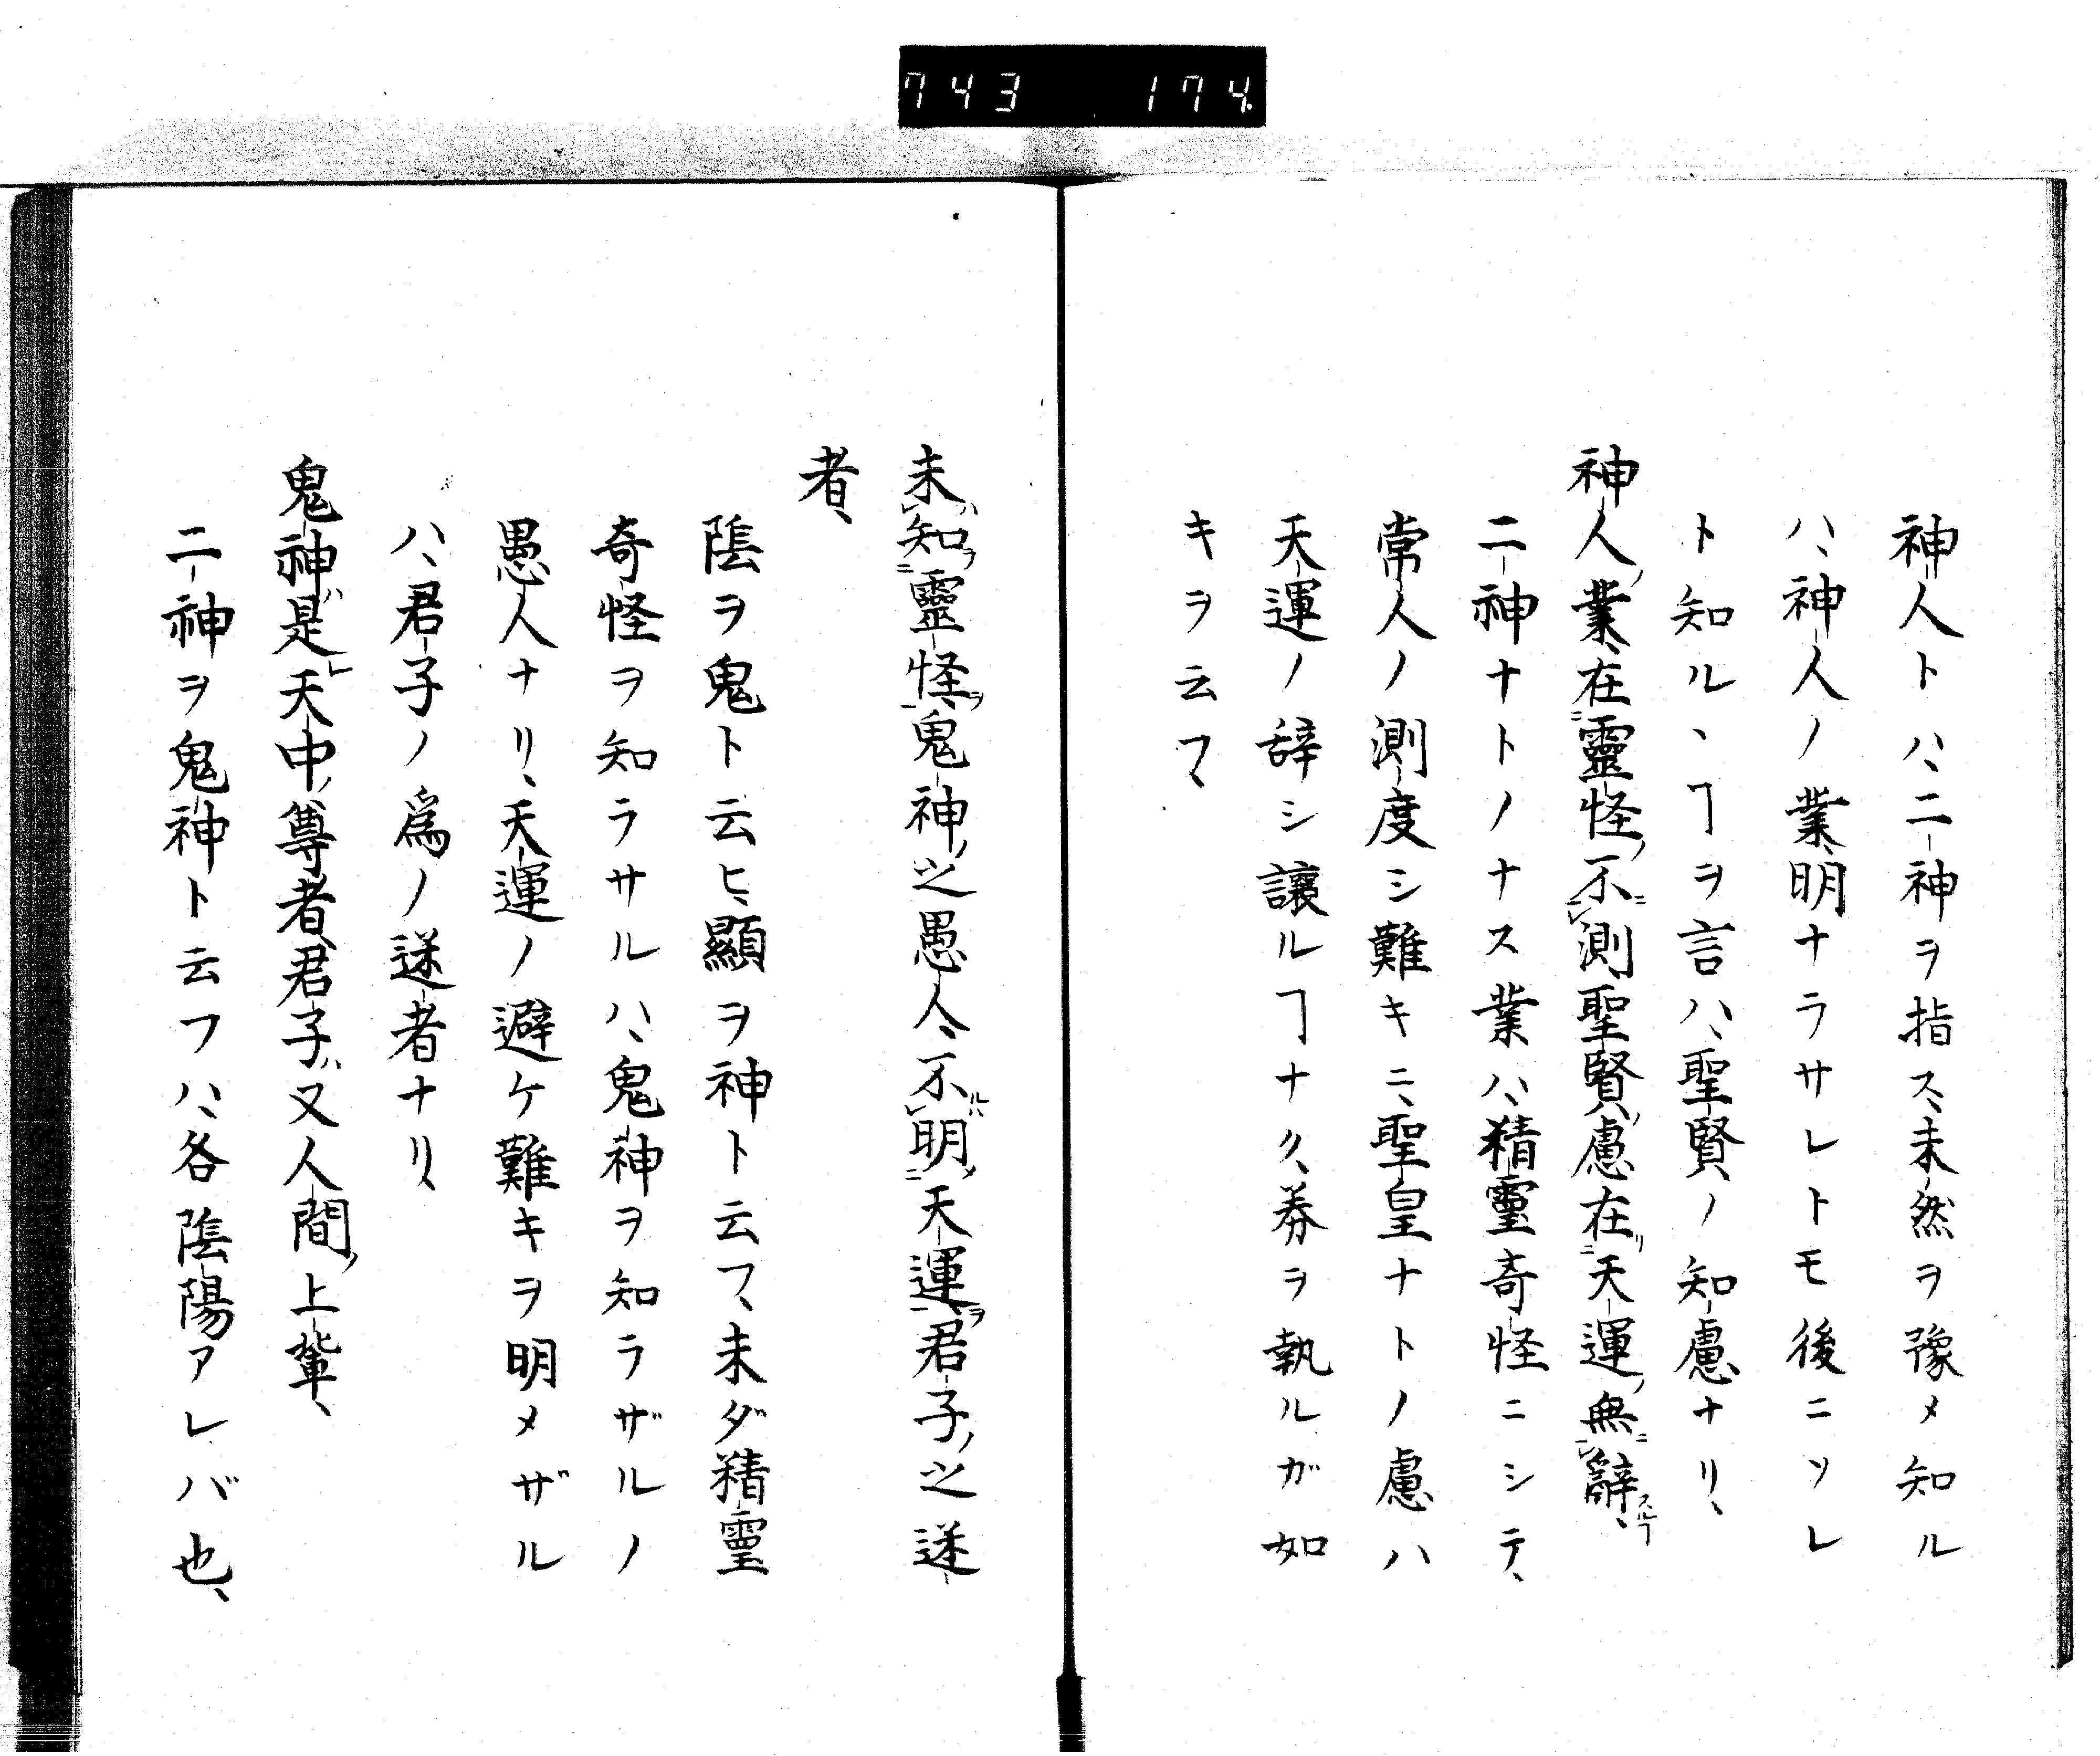 743 174
神人トハ、二神ヲ指ス、未然ヲ豫メ知ル
ハ、神人ノ業、明ナラサレトモ後ニソレ
ト知ルヽヿヲ言ハ、聖賢ノ知慮ナリ、
神人ノ業、在靈怪ノ不測聖賢ノ慮在天運ノ無辭スルヿ、
二神ナトノナス業ハ、精霊奇怪ニシテ、
常人ノ測度シ難キニ、聖皇ナトノ慮ハ
天運ノ辞シ譲ルヿナク、券ヲ執ルガ如
キヲ云フ、
未知靈怪ヲ、鬼神ノ之愚人、不明天運ヲ、君子ノ之迷
者、
隂ヲ鬼ト云ヒ、顯ヲ神ト云フ、未ダ精霊
奇怪ヲ知ラサルハ、鬼神ヲ知ラザルノ
愚人ナリ、天運ノ避ケ難キヲ明メザル
ハ、君子ノ爲ノ迷者ナリ、
鬼神ハ是レ天中ノ尊者、君子ハ又人間ノ上輩、
二神ヲ鬼神ト云フハ、各隂陽アレバ也、